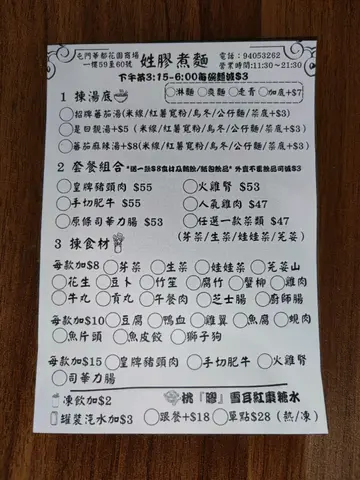 屯門華都花園商場
一樓59至60號
姓膠煮麵
電話：94053262
營業時間:11:30~21:30
下午茶3:15-6:00每碗麵減$3
1 揀湯底
○淋麵 ○爽麵 ○走青 ○加底+$7
○招牌蕃茄湯(米線/紅薯寬粉/烏冬/公仔麵/菜底+$3)
○是日靚湯+$5 (米線/紅薯寬粉/烏冬/公仔麵/菜底+$3)
○蕃茄麻辣湯+$8(米線/紅薯寬粉/烏冬/公仔麵/菜底+$3)
2 套餐組合
○皇牌豬頸肉 $55 ○火雞腎 $53
○手切肥牛 $55 ○人氣雞肉 $47
○原條司華力腸 $53 ○任選一款菜類 $47
(芽菜/生菜/娃娃菜/芫荽)
3 揀食材
每款加$8 ○芽菜 ○生菜 ○娃娃菜 ○芫荽山
○花生 ○豆卜 ○竹笙 ○腐竹 ○蟹柳 ○雞肉
○牛丸 ○貢丸 ○午餐肉 ○芝士腸 ○廚師腸
每款加$10 ○豆腐 ○鴨血 ○雞翼 ○魚腐 ○蜆肉
○魚片頭 ○魚皮餃 ○獅子狗
每款加$15 ○皇牌豬頸肉 ○手切肥牛 ○火雞腎
○司華力腸
凍飲加$2
桃『膠』雪耳紅棗糖水
罐裝汽水加$3
○跟餐+$18 ○單點$28 (熱/凍)